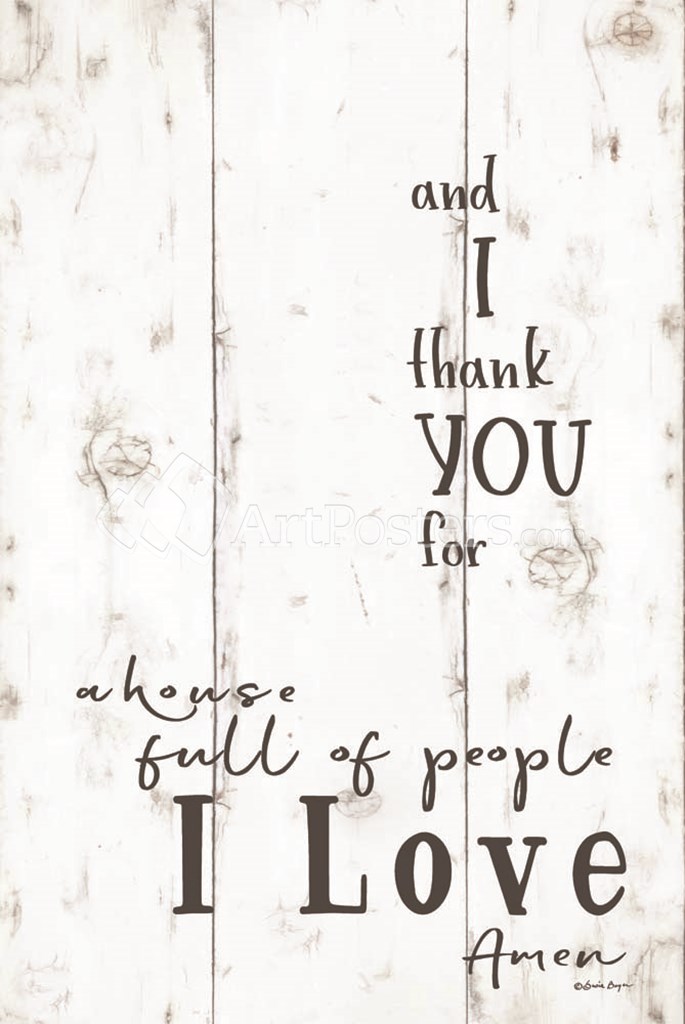 and
I
thank
YOU
for
ArtPosters.com
a house
full of people
I Love
Amen